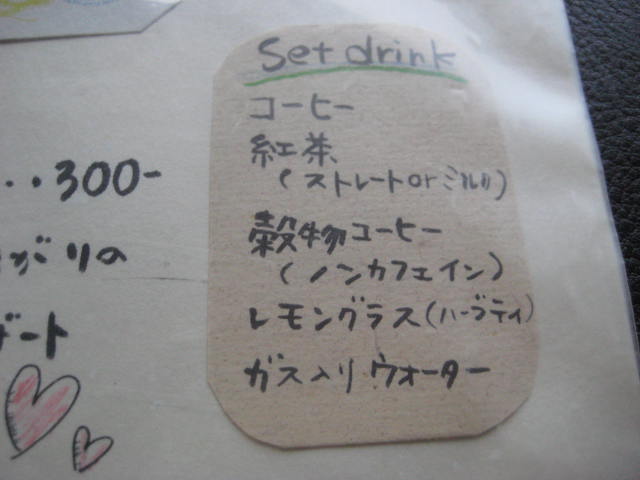 Set drink
コーヒー
紅茶
(ストレートorミルク)
穀物コーヒー
(ノンカフェイン)
レモングラス(ハーブティ)
ガス入りウォーター
..300-
がりの
ザート